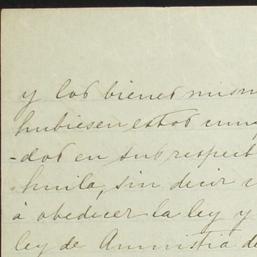 y los bienes mism
hubiesen estos
-dos en sus respect
huila, sin decir
á obedecer la ley y
ley de Amnistia de